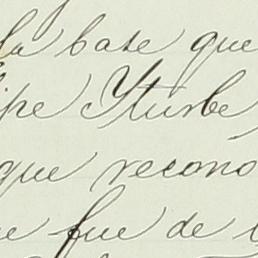 la base que
ipe Yturbe
que recono
e fue de